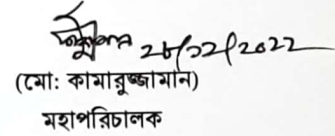 ২৮/১২/২০২২
(মো: কামারুজ্জামান)
মহাপরিচালক